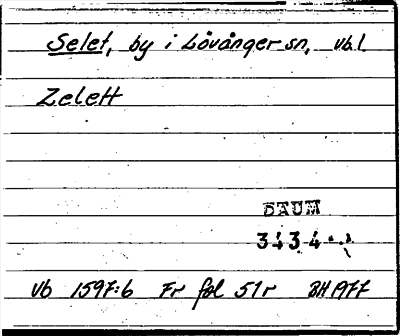 Selet, by i Lövånger sn, vb l.
Zelett
DAUM
3434
Vb 1597:6 Fr fol 51r BH 1977